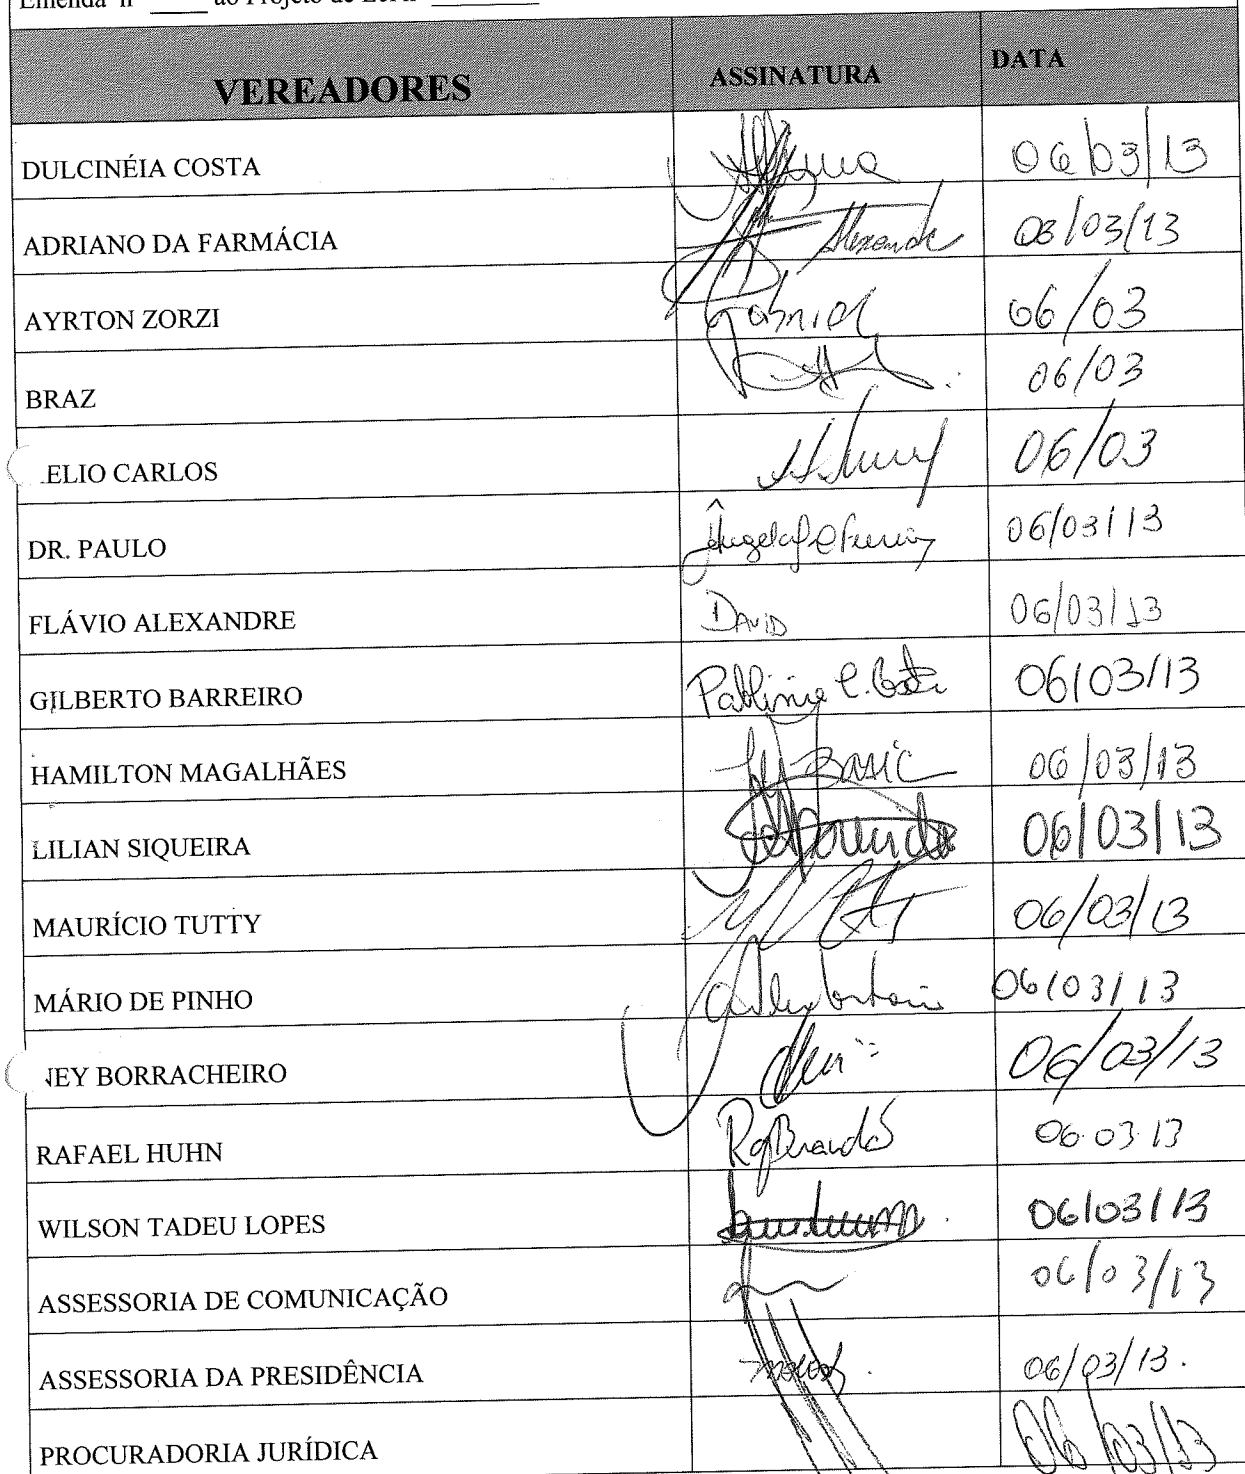 Emenda nº _____ ao Projeto de Lei nº _________
VEREADORES ASSINATURA DATA
DULCINÉIA COSTA 06/03/13
ADRIANO DA FARMÁCIA Alexandre 03/03/13
AYRTON ZORZI Gabriel 06/03
BRAZ 06/03
ELIO CARLOS 06/03
DR. PAULO Ângela 06/03/13
FLÁVIO ALEXANDRE DAVID 06/03/13
GILBERTO BARREIRO 06/03/13
HAMILTON MAGALHÃES 06/03/13
LILIAN SIQUEIRA 06/03/13
MAURÍCIO TUTTY 06/03/13
MÁRIO DE PINHO 06/03/13
NEY BORRACHEIRO 06/03/13
RAFAEL HUHN 06.03.13
WILSON TADEU LOPES 06/03/13
ASSESSORIA DE COMUNICAÇÃO 06/03/13
ASSESSORIA DA PRESIDÊNCIA 06/03/13.
PROCURADORIA JURÍDICA 06/03/13